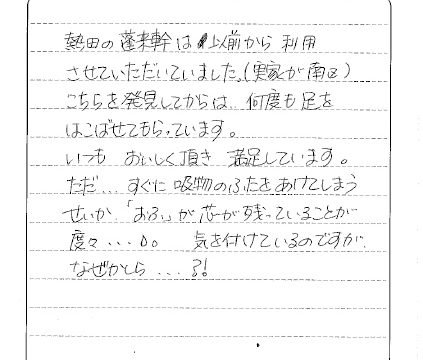 熱田の蓬来軒は以前から利用
させていただいていました。(実家が南区)
こちらを発見してからは、何度も足を
はこばせてもらっています。
いつも おいしく頂き 満足しています。
ただ... すぐに吸物のふたをあけてしまう
せいか、「おふ」が芯が残っていることが
度々...。。 気を付けているのですが、
なぜかしら...?!